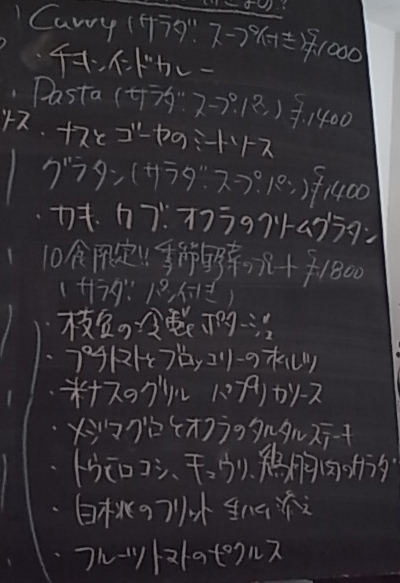 Curry (サラダ.スープ付き) ¥1000
・チキンインドカレー
Pasta (サラダ.スープ.パン) ¥1400
・ナスとゴーヤのミートソース
グラタン (サラダ.スープ.パン) ¥1400
・カキ.カブ.オクラのクリームグラタン
10食限定!! 季節野菜のプレート ¥1800
(サラダ.パン付き)
・枝豆の冷製ポタージュ
・プチトマトとブロッコリーの
・米ナスのグリル パプリカソース
・メジマグロとオクラのタルタルステーキ
・トウモロコシ、キュウリ、鶏胸肉のサラダ
・白桃のフリット 生ハム添え
・フルーツトマトのピクルス